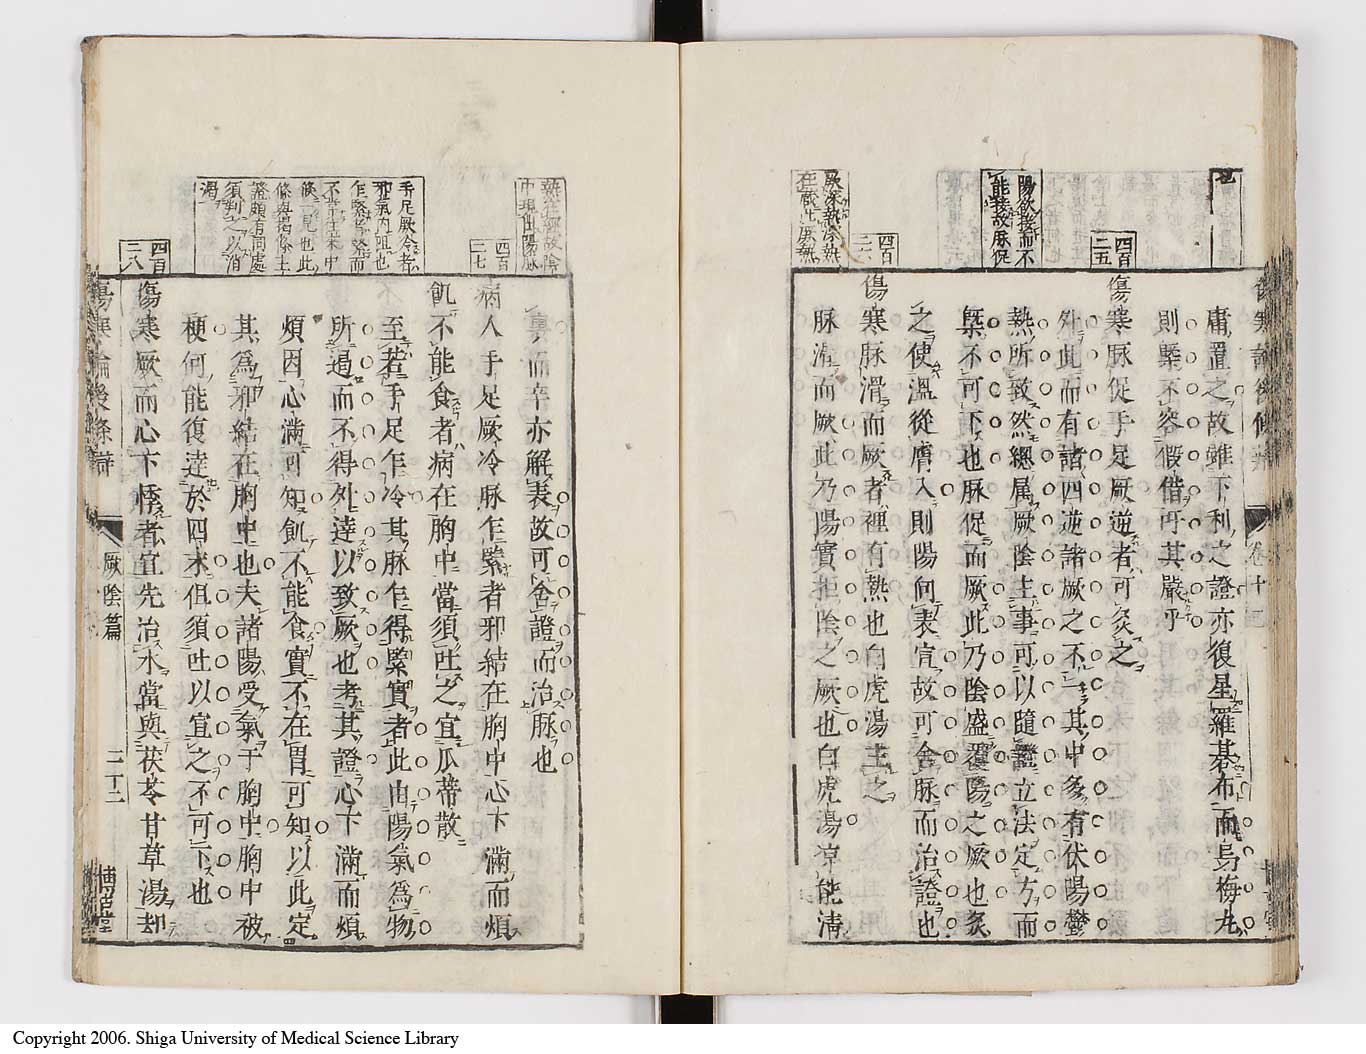 庸置之故雖下利之證亦復星羅碁布而烏梅丸
則槩不容假借丹其嚴乎
傷寒脉促手足厥逆者可灸之
外此而有諸四逆諸厥之不一其中多有伏陽鬱
熱所致然總属厥陰主事可以隨證立法定方而
槩不可下也脉促而厥此乃陰盛覆陽之厥也炙
之使溫從膚入則陽向表宣故可舍脉而治證也
傷寒脉滑而厥者裡有熱也白虎湯主之
脉滑而厥此乃陽實拒陰之厥也白虎湯凉能清
陽欲接而不
能接故脉促
厥深熱深熱
四百
二五
四百
二六
卷十
裏而辛亦解表故可舍證而治脉也
病人手足厥冷脉乍緊者邪結在胸中心下滿而煩
飢不能食者病在胸中當須吐之宜瓜蒂散
至若手足乍冷其脉乍得緊實者此由陽氣爲物
所遏而不得外達以致厥也考其證心下滿而煩
煩因心滿可知飢不能食實不在胃可知以此定
其爲邪結在胸中也夫諸陽受氣于胸中胸中被
梗何能復達於四末但須吐以宣之不可下也
傷寒厥而心下悸者宜先治水當與茯苓甘草湯却
中現但陽脉
手足厥冷者
邪氣内阻也
乍緊緊而
條一見也此
條與揭條主
證頗有同處
須判之以消
渴
四百
二七
四百
二八
傷寒論後條辯
厥陰篇
二十二
博古堂
Copyright 2006. Shiga University of Medical Science Library